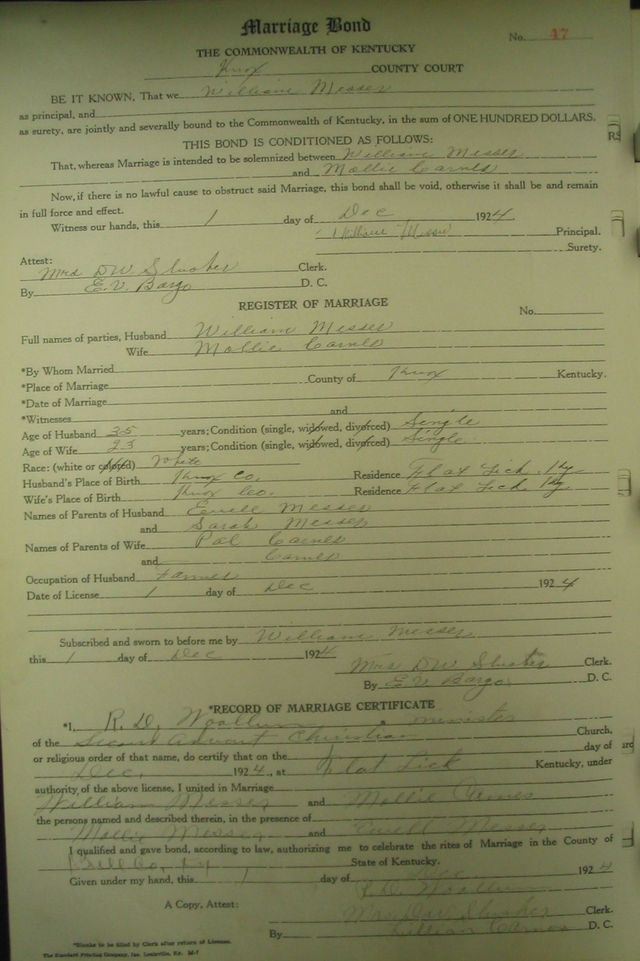 Marriage Bond
No. 47
THE COMMONWEALTH OF KENTUCKY
Knox COUNTY COURT
BE IT KNOWN, That we William Messer
as principal, and
as surety, are jointly and severally bound to the Commonwealth of Kentucky, in the sum of ONE HUNDRED DOLLARS.
THIS BOND IS CONDITIONED AS FOLLOWS:
That, whereas Marriage is intended to be solemnized between William Messer
and Mollie Carnes
Now, if there is no lawful cause to obstruct said Marriage, this bond shall be void, otherwise it shall be and remain
in full force and effect.
Witness our hands, this 1 day of Dec 1924
William Messer Principal.
Surety.
Attest:
Mrs DW Slusher Clerk.
By E.V. Bargo D. C.
REGISTER OF MARRIAGE
No.
Full names of parties, Husband William Messer
Wife Mollie Carnes
*By Whom Married
*Place of Marriage County of Knox Kentucky.
*Date of Marriage
*Witnesses and
Age of Husband 35 years; Condition (single, widowed, divorced) Single
Age of Wife 23 years; Condition (single, widowed, divorced) Single
Race: (white or colored) White
Husband's Place of Birth Knox Co. Residence Flat Lick, Ky
Wife's Place of Birth Knox Co. Residence Flat Lick, Ky
Names of Parents of Husband Ewell Messer
and Sarah Messer
Names of Parents of Wife Pal Carnes
and Carnes
Occupation of Husband Farmer
Date of License 1 day of Dec 1924
Subscribed and sworn to before me by William Messer
this 1 day of Dec 1924
Mrs DW Slusher Clerk.
By E.V. Bargo D. C.
*RECORD OF MARRIAGE CERTIFICATE
*I, R. D. Woollum a minister
of the Second Advent Christian Church,
or religious order of that name, do certify that on the 1 day of
Dec. 1924, at Flat Lick Kentucky, under
authority of the above license, I united in Marriage
William Messer and Mollie Carnes
the persons named and described therein, in the presence of
Mollie Messer and Ewell Messer
I qualified and gave bond, according to law, authorizing me to celebrate the rites of Marriage in the County of
Bell Co, Ky State of Kentucky.
Given under my hand, this 1 day of Dec 1924
R. D. Woollum
A Copy, Attest: Mrs. DW Slusher Clerk.
By Lillian D. C.
*Blanks to be filled by Clerk after return of License.
The Standard Printing Company, Inc. Louisville, Ky.